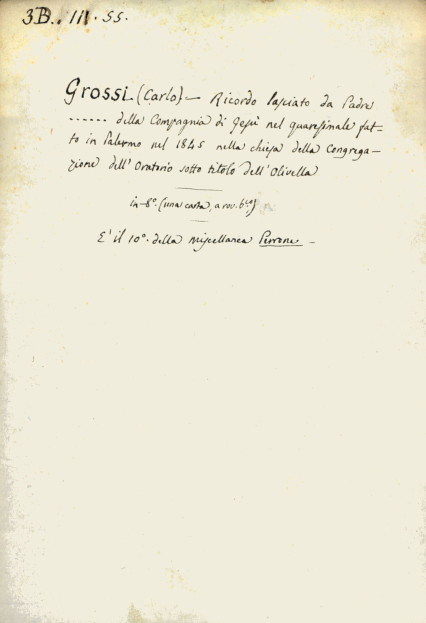 3B. . III . 55.
Grossi (Carlo) — Ricordo lasciato da Padre
...... della Compagnia di Gesù nel quaresimale fat=
to in Palermo nel 1845 nella chiesa della Congrega—
zione dell'Oratorio sotto titolo dell'Olivella
in-8º. (una carta, a rov. b.ca)
E' il 10º. della miscellanea Perrone —